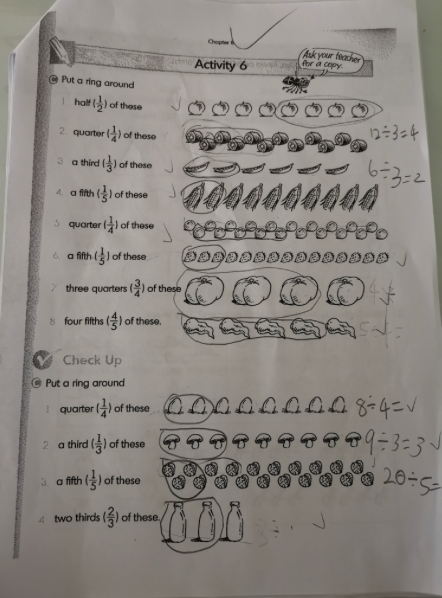 Chapter 6
Ask your teacher
for a copy.
Activity 6
Put a ring around
1 half (1/2) of these
2. quarter (1/4) of these
12÷3=4
3 a third (1/3) of these
6÷3=2
4. a fifth (1/5) of these
5 quarter (1/4) of these
6. a fifth (1/5) of these
7 three quarters (3/4) of these
8 four fifths (4/5) of these.
Check Up
Put a ring around
1 quarter (1/4) of these
8÷4=
2 a third (1/3) of these
9÷3=3
3. a fifth (1/5) of these
20÷5=
4. two thirds (2/3) of these.